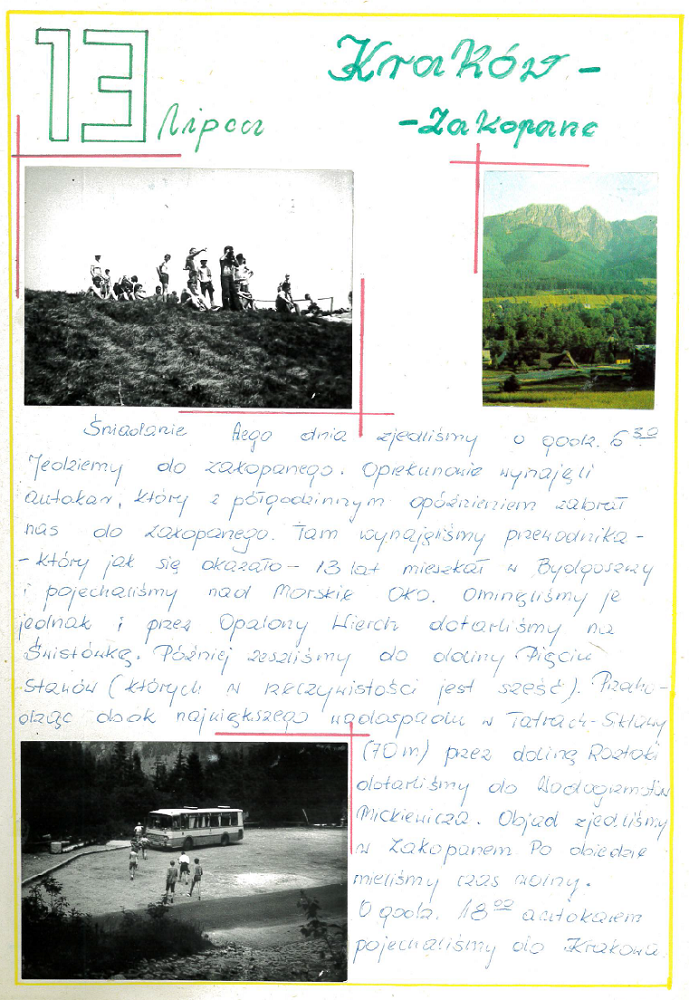 13 lipca
Kraków -
- Zakopane
Śniadanie tego dnia zjedliśmy o godz. 6³⁰.
Jedziemy do zakopanego. Opiekunowie wynajęli
autokar, który z półgodzinnym opóźnieniem zabrał
nas do zakopanego. Tam wynajęliśmy przewodnika -
- który jak się okazało - 13 lat mieszkał w Bydgoszczy
i pojechaliśmy nad Morskie Oko. Ominęliśmy je
jednak i przez Opalony Wierch dotarliśmy na
Świstówkę. Później zeszliśmy do doliny Pięciu
Stawów (których w rzeczywistości jest sześć). Przecho-
dząc obok największego wodospadu w Tatrach - Siklawy
(70 m) przez dolinę Roztoki
dotarliśmy do Wodogrzmotów
Mickiewicza. Obiad zjedliśmy
w Zakopanem. Po obiedzie
mieliśmy czas wolny.
O godz. 18⁰⁰ autokarem
pojechaliśmy do Krakowa.